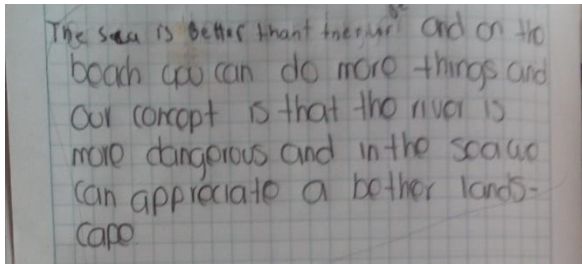 The sea is better thant the river and on the
beach you can do more things and
our concept is that the river is
more dangerous and in the sea we
can appreciate a bether lands-
cape